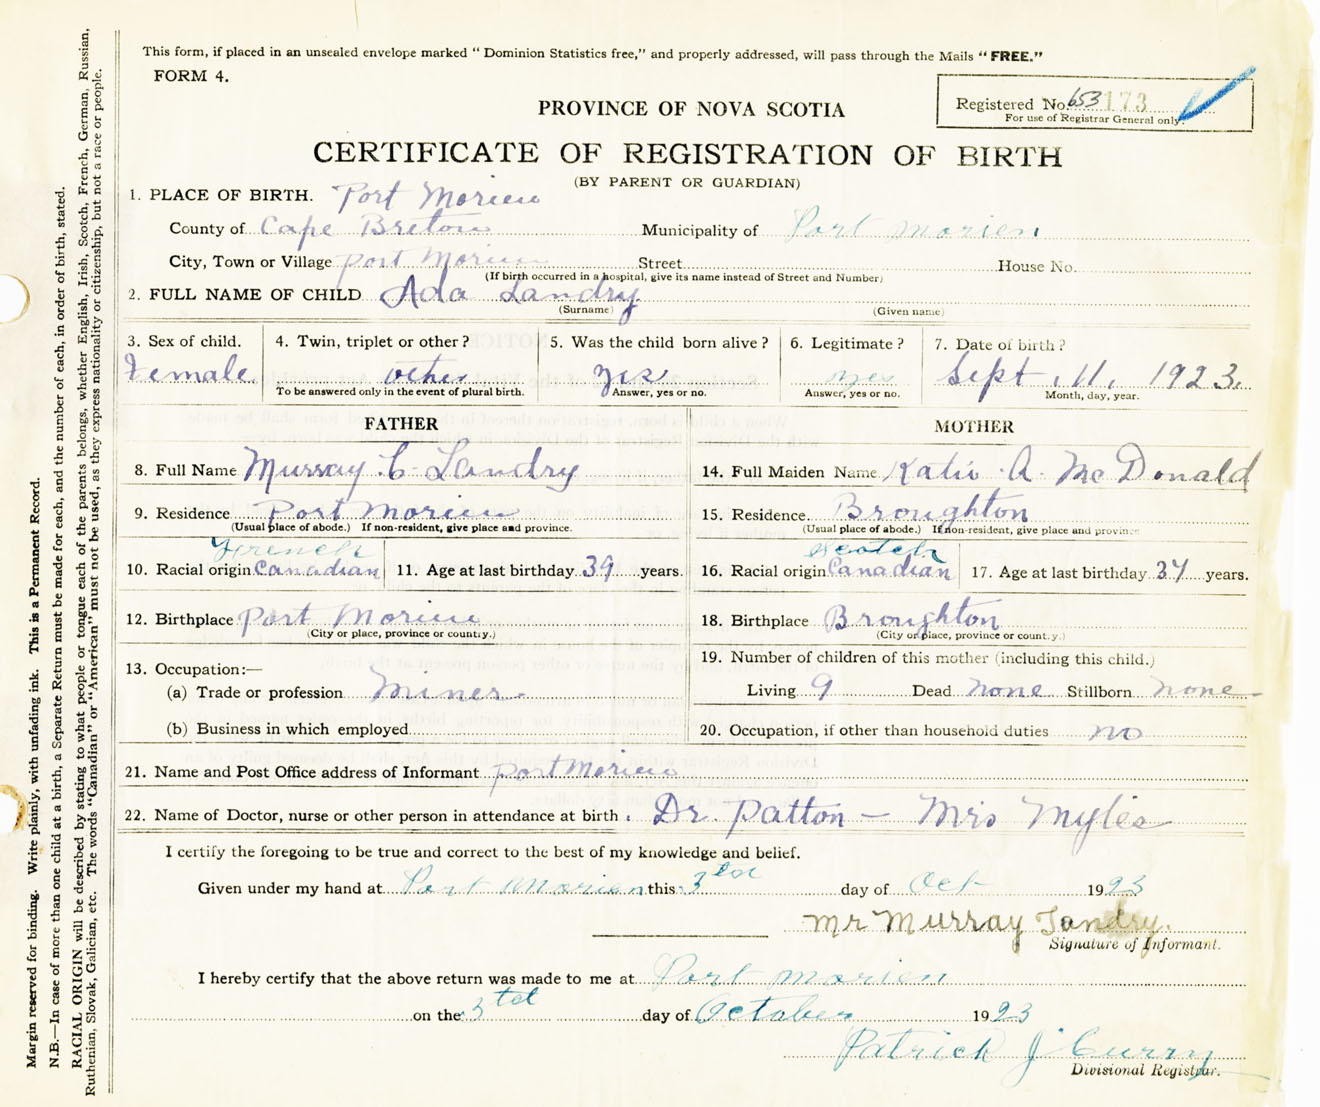 This form, if placed in an unsealed envelope marked "Dominion Statistics free," and properly addressed, will pass through the Mails "FREE."
FORM 4.
Registered No. 653 173
For use of Registrar General only.
PROVINCE OF NOVA SCOTIA
CERTIFICATE OF REGISTRATION OF BIRTH
(BY PARENT OR GUARDIAN)
1. PLACE OF BIRTH. Port Morien
County of Cape Breton Municipality of Port Morien
City, Town or Village Port Morien Street House No.
(If birth occurred in a hospital, give its name instead of Street and Number)
2. FULL NAME OF CHILD Ada Landry
(Surname) (Given name)
3. Sex of child. 4. Twin, triplet or other? 5. Was the child born alive? 6. Legitimate? 7. Date of birth?
Female other yes yes Sept. 11, 1923.
To be answered only in the event of plural birth. Answer, yes or no. Answer, yes or no. Month, day, year.
FATHER MOTHER
8. Full Name Murray C Landry 14. Full Maiden Name Katie A. McDonald
9. Residence Port Morien 15. Residence. Broughton
(Usual place of abode.) If non-resident, give place and province. (Usual place of abode.) If non-resident, give place and province
French Scotch
10. Racial origin Canadian 11. Age at last birthday 39 years. 16. Racial origin Canadian 17. Age at last birthday 37 years.
12. Birthplace Port Morien 18. Birthplace Broughton
(City or place, province or county.) (City or place, province or county.)
13. Occupation:— 19. Number of children of this mother (including this child.)
(a) Trade or profession Miner Living 9 Dead none Stillborn none
(b) Business in which employed 20. Occupation, if other than household duties no
21. Name and Post Office address of Informant Port Morien
22. Name of Doctor, nurse or other person in attendance at birth. Dr. Patton — Mrs Myles
I certify the foregoing to be true and correct to the best of my knowledge and belief.
Given under my hand at Port Morien this 3rd day of Oct 1923
Mr Murray Landry.
Signature of Informant.
I hereby certify that the above return was made to me at Port Morien
on the 3rd day of October 1923
Patrick J Curry
Divisional Registrar.
Margin reserved for binding. Write plainly, with unfading ink. This is a Permanent Record.
N.B.—In case of more than one child at a birth, a Separate Return must be made for each, and the number of each, in order of birth, stated.
RACIAL ORIGIN will be described by stating to what people or tongue each of the parents belongs, whether English, Irish, Scotch, French, German, Russian,
Ruthenian, Slovak, Galician, etc. The words "Canadian" or "American" must not be used, as they express nationality or citizenship, but not a race or people.